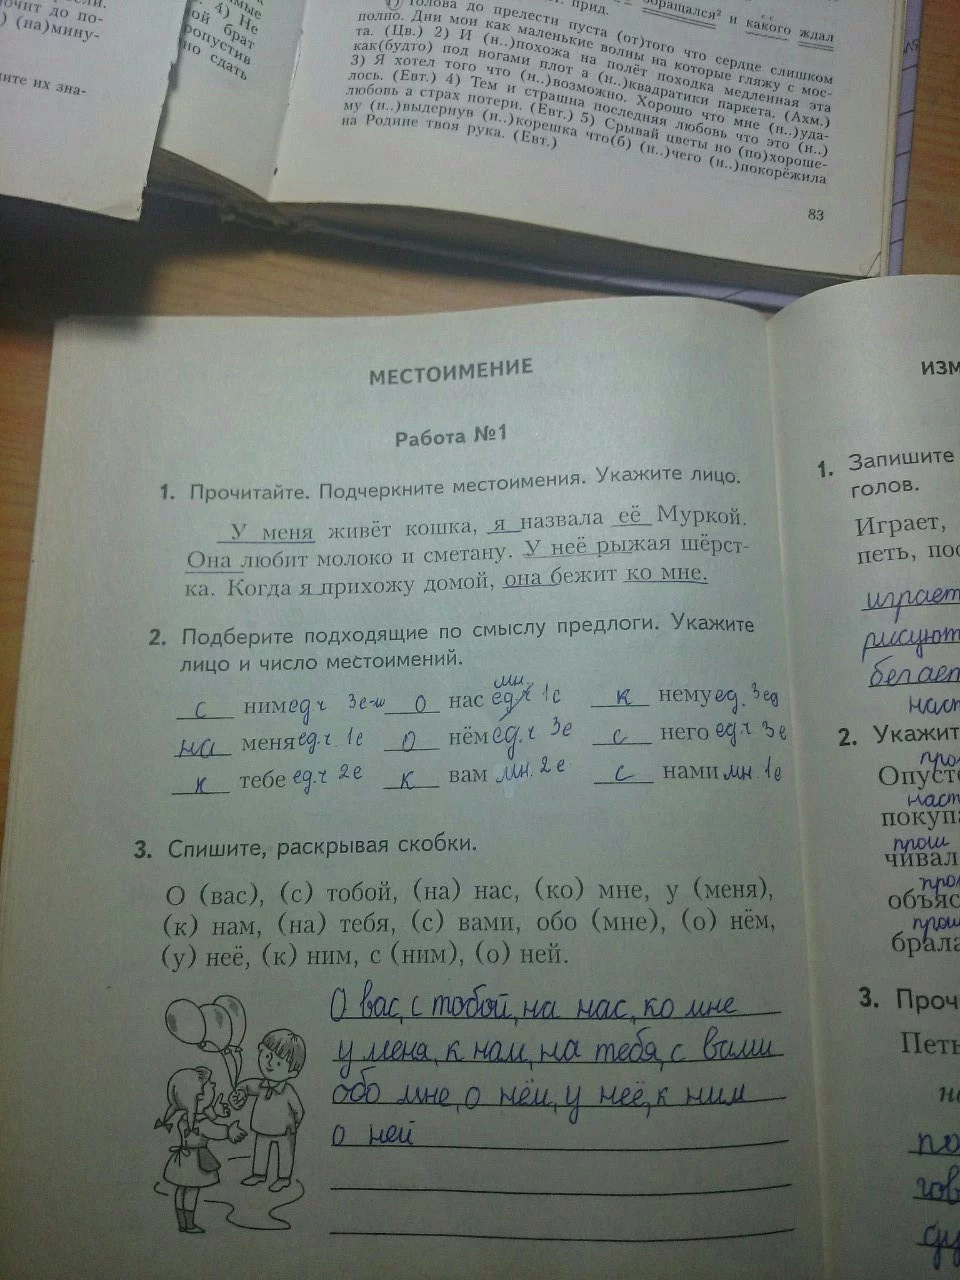 рели.
очит до по-
) (на)мину-
ите их зна-
мые
. 4) Не
ой брат
ропустив
но сдать
прид.
обращался² и какого ждал
1) Голова до прелести пуста (от)того что сердце слишком
полно. Дни мои как маленькие волны на которые гляжу с мос-
та. (Цв.) 2) И (н..)похожа на полёт походка медленная эта
как(будто) под ногами плот а (н..)квадратики паркета. (Ахм.)
3) Я хотел того что (н..)возможно. Хорошо что мне (н..)уда-
лось. (Евт.) 4) Тем и страшна последняя любовь что это (н..)
любовь а страх потери. (Евт.) 5) Срывай цветы но (по)хороше-
му (н..)выдернув (н..)корешка что(б) (н..)чего (н..)покорёжила
на Родине твоя рука. (Евт.)
83
МЕСТОИМЕНИЕ
Работа №1
1. Прочитайте. Подчеркните местоимения. Укажите лицо.
У меня живёт кошка, я назвала её Муркой.
Она любит молоко и сметану. У неё рыжая шёрст-
ка. Когда я прихожу домой, она бежит ко мне.
2. Подберите подходящие по смыслу предлоги. Укажите
лицо и число местоимений.
мн.
с ним ед.ч 3е о нас ед.ч 1с к нему ед. 3ед
на меня ед.ч. 1е о нём ед.ч 3е с него ед.ч 3е
к тебе ед.ч 2е к вам мн. 2е с нами мн. 1е
3. Спишите, раскрывая скобки.
О (вас), (с) тобой, (на) нас, (ко) мне, у (меня),
(к) нам, (на) тебя, (с) вами, обо (мне), (о) нём,
(у) неё, (к) ним, с (ним), (о) ней.
О вас, с тобой, на нас, ко мне
у меня, к нам, на тебя, с вами
обо мне, о нём, у неё, к ним
о ней
ИЗМ
1. Запишите
голов.
Играет,
петь, пос
играет
рисуют
бегает
наст
2. Укажит
прош
Опусте
наст
покупа
прош
чивал
прош
объяс
прош
брала
3. Проч
Петь
по
гов
ду